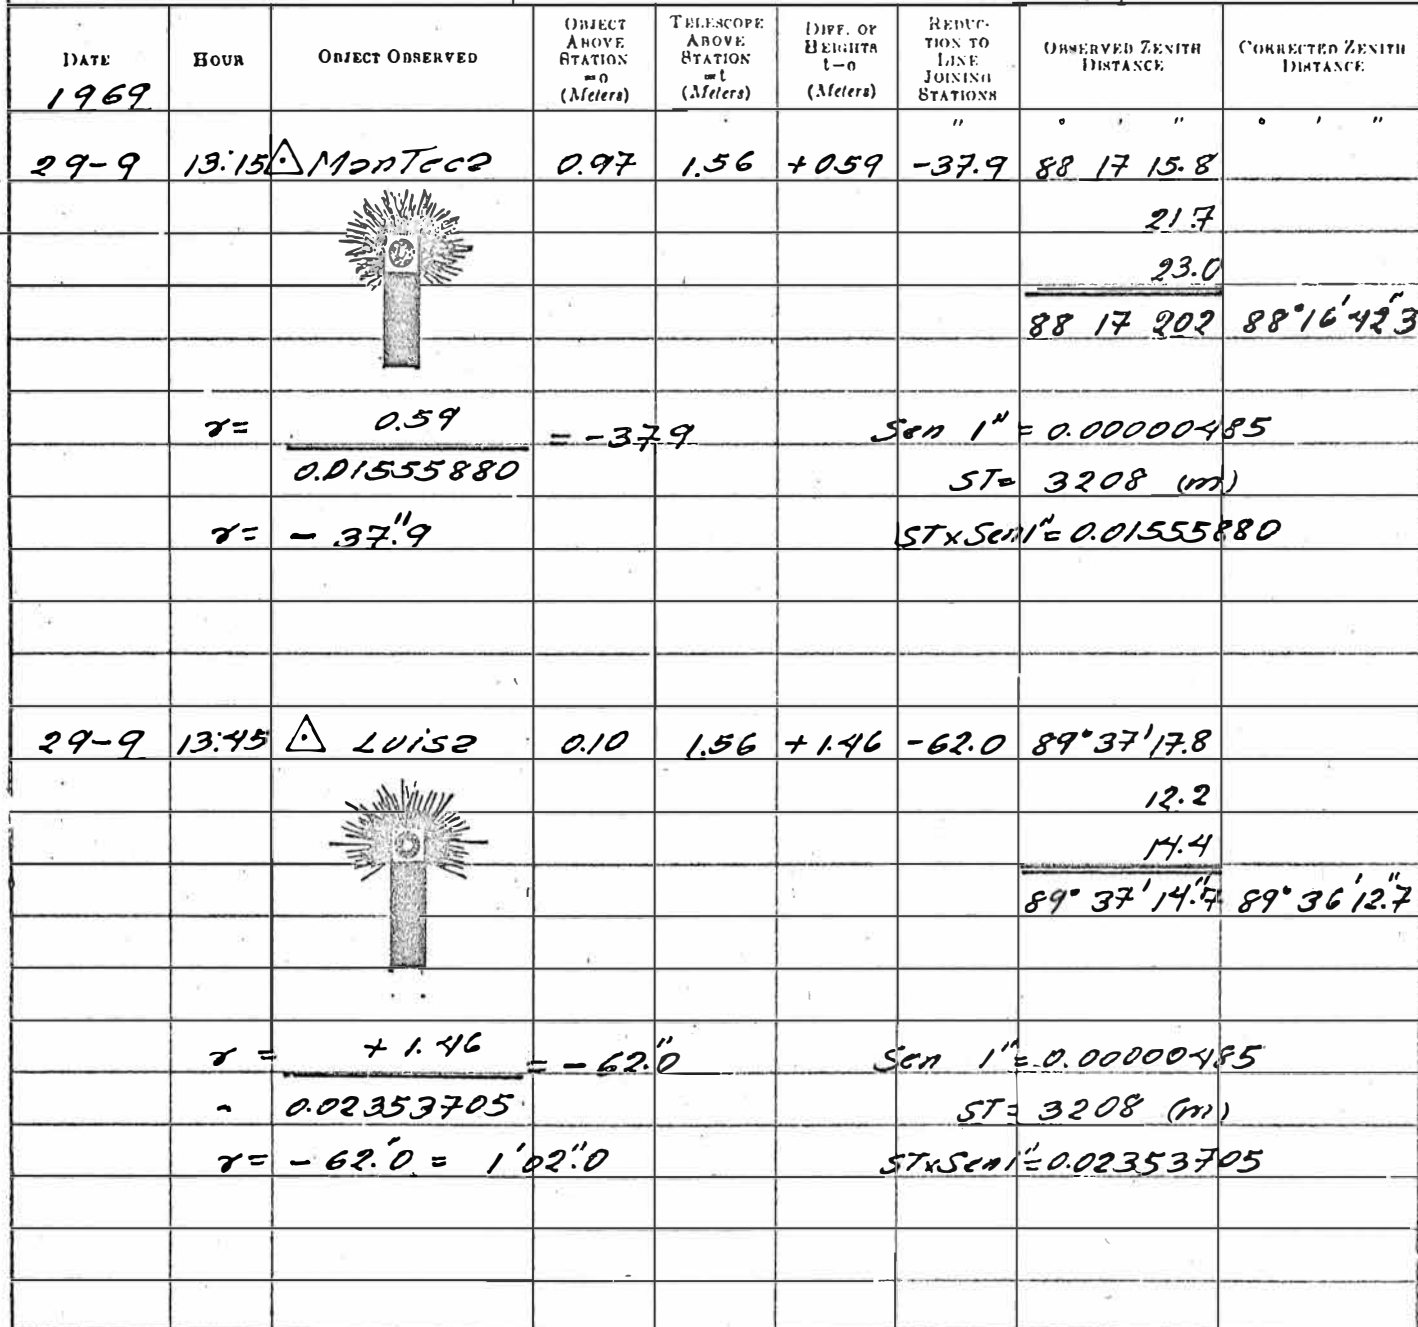 DATE HOUR OBJECT OBSERVED OBJECT ABOVE STATION =o (Meters) TELESCOPE ABOVE STATION =t (Meters) DIFF. OF HEIGHTS t-o (Meters) REDUCTION TO LINE JOINING STATIONS OBSERVED ZENITH DISTANCE CORRECTED ZENITH DISTANCE
1969
" ° ' " ° ' "
29-9 13:15 △ Manteca 0.97 1.56 +0.59 -37.9 88 17 15.8
21.7
23.0
88 17 202 88°16'42"3
r= 0.59 / 0.01555880 = -37.9 Sen 1" = 0.00000485
ST= 3208 (m)
r= -37."9 STxSen1"= 0.01555880
29-9 13:45 △ Luisa 0.10 1.56 +1.46 -62.0 89°37'17.8
12.2
14.4
89°37'14."7 89°36'12."7
r = +1.46 / 0.02353705 = -62."0 Sen 1"= 0.00000485
ST= 3208 (m)
r= -62.'0 = 1'02."0 STxSen1"=0.02353705